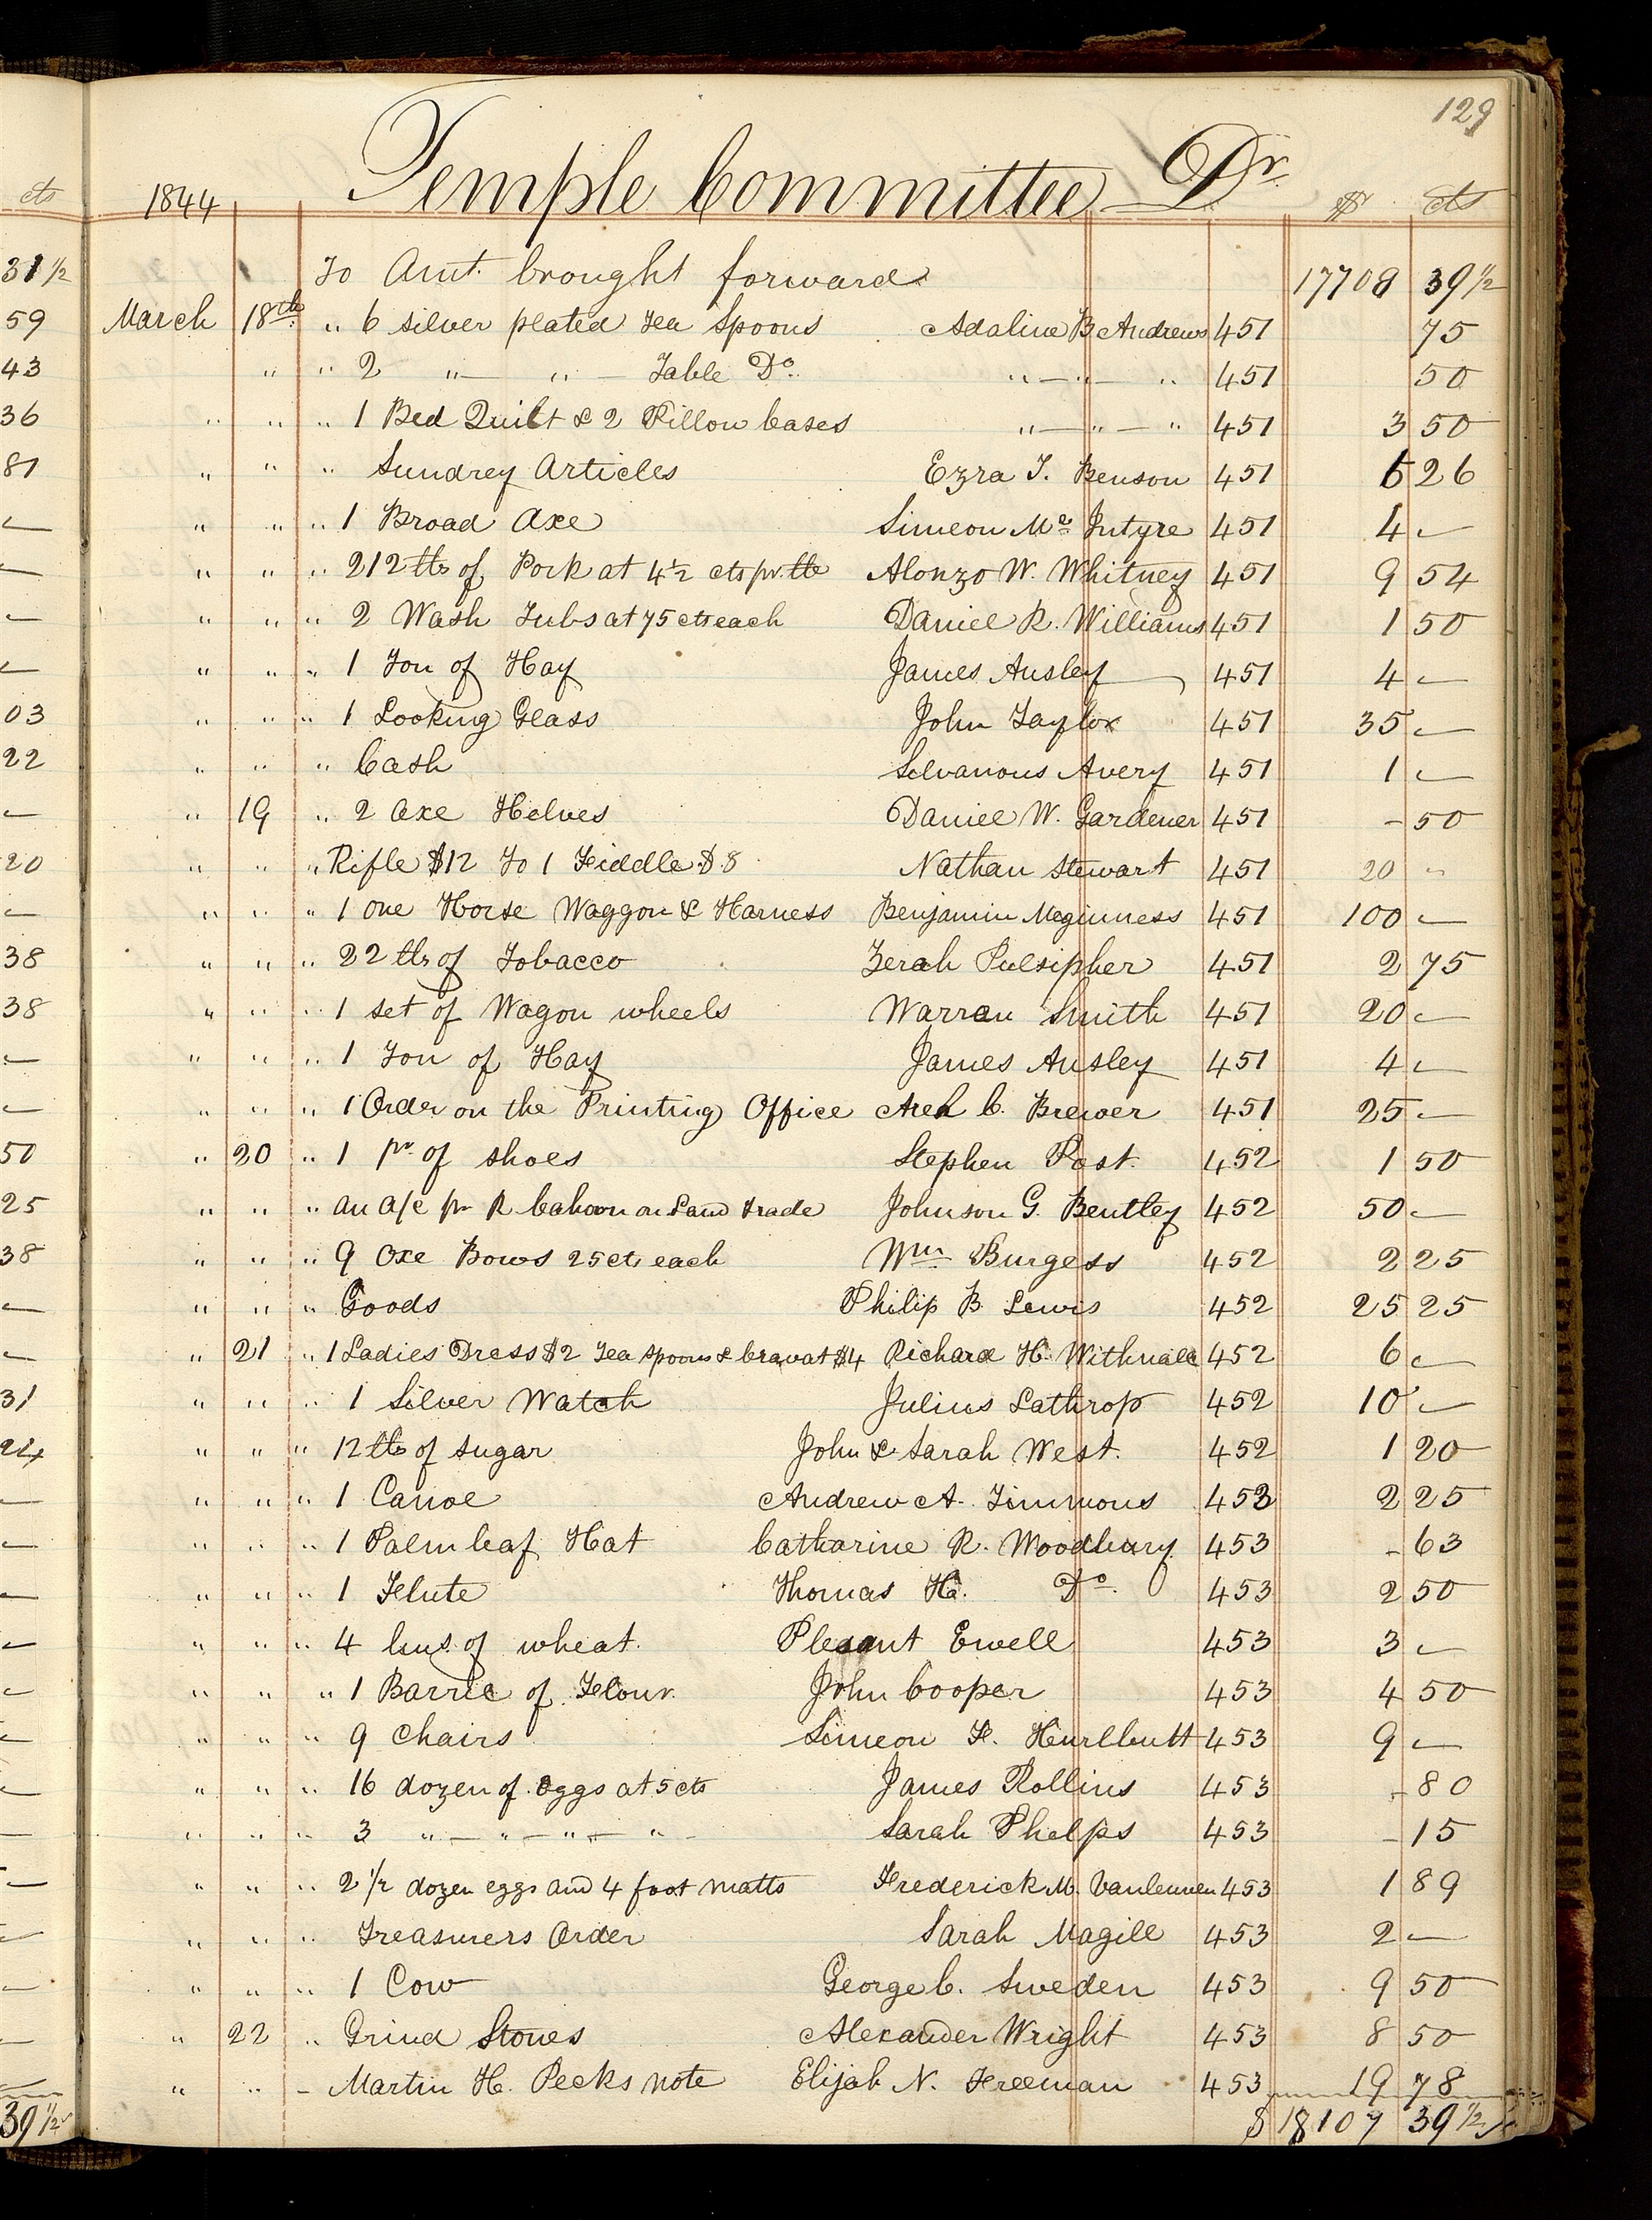 129
cts 1844 Temple Committee Dr. $ cts
31 1/2 To Amt. brought forward 17708 39 1/2
59 March 18th " 6 silver plated Tea Spoons Adaline B Andrews 451 75
43 " " 2 "— " — Table Do. "—"— " 451 50
36 " " " 1 Bed Quilt & 2 Pillow Cases "—"— " 451 3 50
81 " " " Sundrey Articles Ezra T. Benson 451 6 26
— " " " 1 Broad Axe Simeon Mc Intyre 451 4 —
— " " " 212 lbs of Pork at 4 1/2 cts pr. lb Alonzo W. Whitney 451 9 54
— " " " 2 Wash Tubs at 75 cts each Daniel R. Williams 451 1 50
— " " " 1 Ton of Hay James Ansley 451 4 —
03 " " " 1 Looking Glass John Taylor 451 35 —
22 " " " Cash Silvanous Avery 451 1 —
— " 19 " 2 Axe Helves Daniel W. Gardener 451 - 50
20 " " " Rifle $12 To 1 Fiddle $8 Nathan Stewart 451 20 "
— " " " 1 one Horse Waggon & Harness Benjamin Meginness 451 100 —
38 " " " 22 lbs of Tobacco Zerah Pulsipher 451 2 75
38 " " " 1 set of Wagon wheels Warren Smith 451 20 —
— " " " 1 Ton of Hay James Ansley 451 4 —
— " " " 1 Order on the Printing Office Areh C. Brewer 451 25 —
50 " 20 " 1 pr. of shoes Stephen Post. 452 1 50
25 " " " an a/c pr R Cahoon on Land trade Johnson G. Bentley 452 50 —
38 " " " 9 Oxe Bows 25 cts each Wm. Burgess 452 2 25
— " " " Goods Philip B Lewis 452 25 25
— " 21 " 1 Ladies Dress $2 Tea spoons & Cravat $4 Richard H. Withnall 452 6 —
31 " " " 1 Silver Watch Julius Lathrop 452 10 —
24 " " " 12 lbs of sugar John & Sarah West. 452 1 20
— " " " 1 Canoe Andrew A. Timmons 453 2 25
— " " " 1 Palm leaf Hat Catharine R. Woodbury 453 - 63
— " " " 1 Flute Thomas H. Do. 453 2 50
— " " " 4 bus. of wheat. Pleasant Ewell 453 3 —
— " " " 1 Barrel of Flour. John Cooper 453 4 50
— " " " 9 Chairs Simeon F. Hurlbutt 453 9 —
— " " " 16 dozen of eggs at 5 cts James Rollins 453 - 80
— " " " 3 "— "—"— " - Sarah Phelps 453 - 15
— " " " 2 1/2 dozen eggs and 4 foot matts Frederick M. Vanleuven 453 1 89
— " " " Treasurers Order Sarah Magill 453 2 —
— " " " 1 Cow George C. Sweden 453 9 50
— " 22 " Grind Stones Alexander Wright 453 8 50
" " - Martin H. Pecks note Elijah N. Freeman 453 19 78
39 1/2 $ 18107 39 1/2